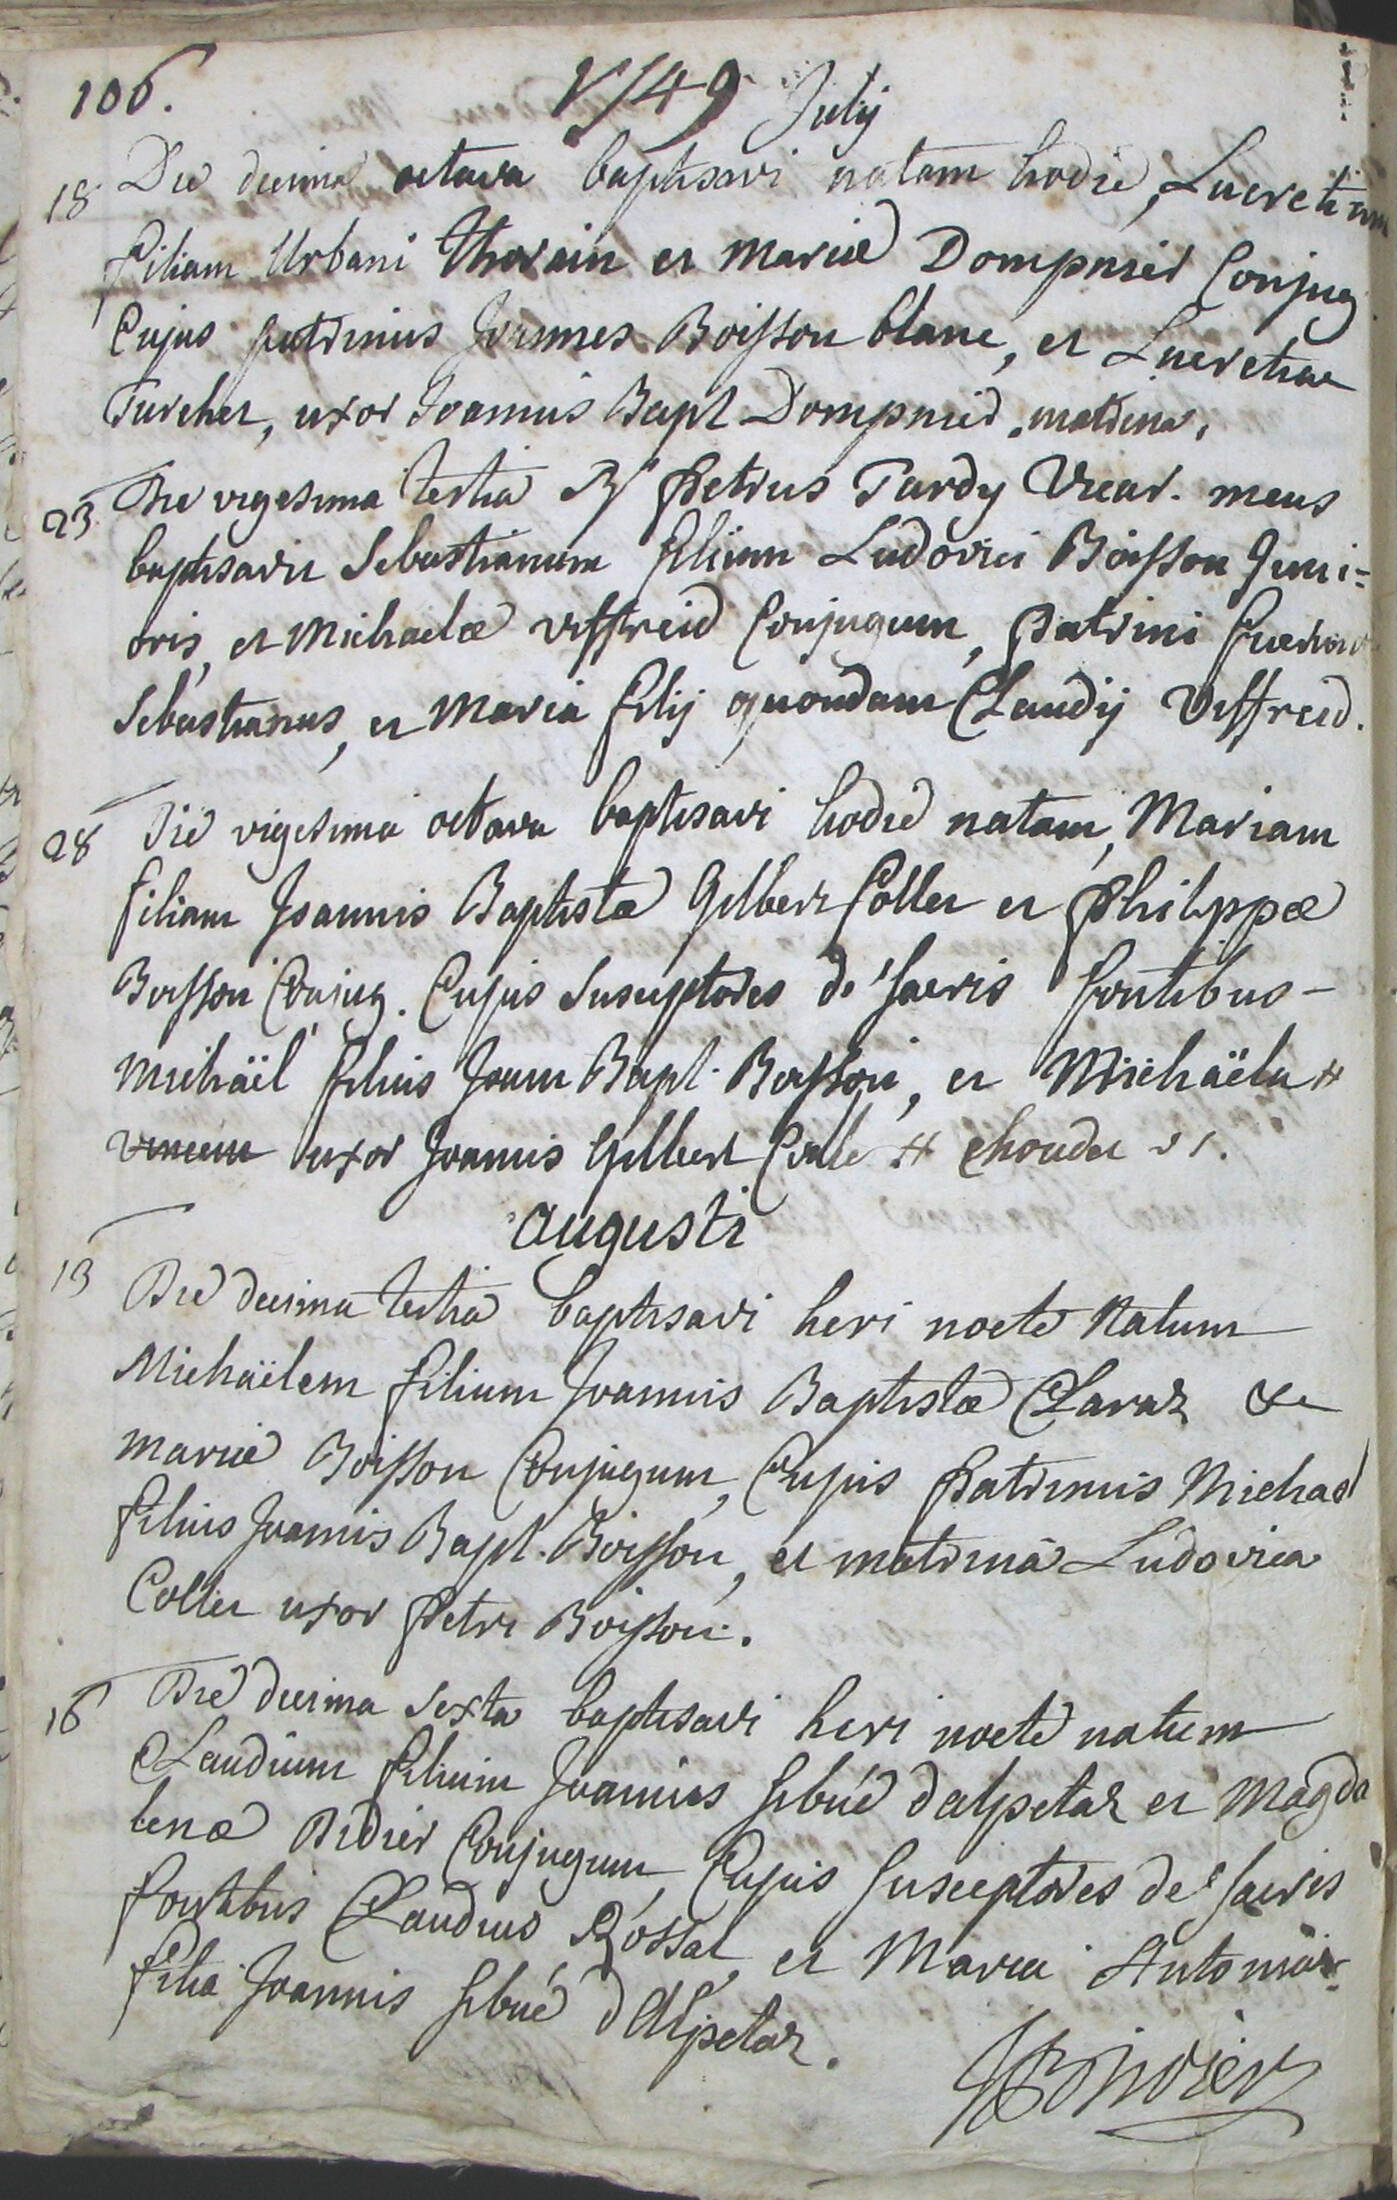 106.
1749 Julij
18 Die decima octava baptisavi natam hodie, Lucretiam
filiam Urbani Thorain et Mariæ Dompnier Conjug
Cujus patrinus Joannes Boisson blanc, et Lucretia
Turchet, uxor Joannis Bapt Dompnier, matrina.
23 Die vigesima tertia Rd Petrus Tardy Vicar. meus
baptisavit Sebastianum filium Ludovici Boisson Juni=
oris, et Michaelæ Viffreid Conjugum, Patrini fuerunt
Sebastianus, et Maria filij quondam Claudij Viffreid.
28 Die vigesima octava baptisavi hodie natam, Mariam
filiam Joannis Baptistæ Gilbert Collet et Philippæ
Boisson Conjug. Cujus Susceptores de Sacris fontibus -
Michäel filius Joan Bapt. Boisson, et Michäela #
uxor Joannis Gilbert Colle # choudet
Augusti
13 Die decima tertia baptisavi heri nocte Natum
Michäelem filium Joannis Baptistæ Claraz &
mariæ Boisson Conjugum, Cujus Patrinus Michael
filius Joannis Bapt. Boisson, et matrina Ludovica
Collet uxor Petri Boisson.
16 Die decima Sexta baptisavi heri nocte natum
Claudium filium Joannis Sibué dalpetaz et Magda
lenæ Didier Conjugum, Cujus Susceptores de Sacris
fontibus Claudius Rossat, et Maria Antonia
filia Joannis Sibué dAlpetaz.